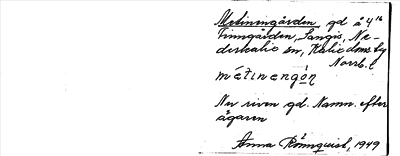 Metinengården, gd å 4¹⁶
Finngården, Sangis, Ne-
derkalix sn, Kalix domb by
Norrb. l
métinengón
Nu riven gd. Namn. efter
ägaren
Anna Rönnquist, 1949